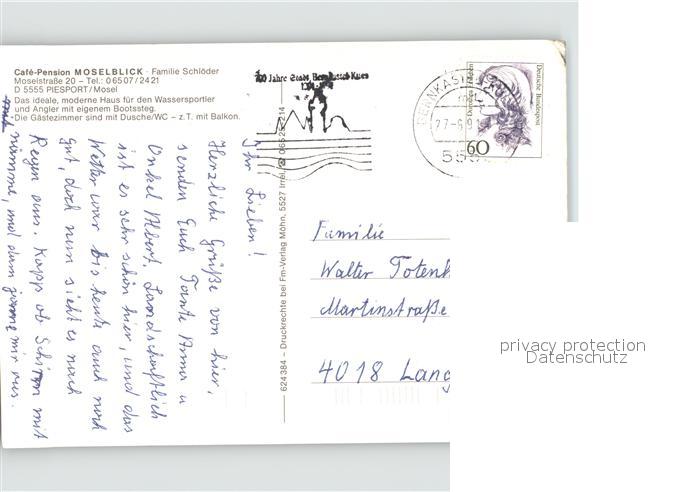 Café-Pension MOSELBLICK · Familie Schlöder
Moselstraße 20 – Tel.: 06507/2421
D 5555 PIESPORT/Mosel
Das ideale, moderne Haus für den Wassersportler
und Angler mit eigenem Bootssteg.
Die Gästezimmer sind mit Dusche/WC – z.T. mit Balkon.
700 Jahre Stadt Bernkastel-Kues
BERNKASTEL-KU
60
Deutsche Bundespost
624384 – Druckrechte bei Fm-Verlag Möhn, 5527 Irrel, 06525-214
Ihr Lieben!
Herzliche Grüße von hier,
senden Euch Tante Anna u
Onkel Albert. Landschaftlich
ist es sehr schön hier, und das
Wetter war bis heute auch noch
gut, doch nun sieht es nach
Regen aus. Kapp ob Schirm mit
nimme, mol dann
Familie
Walter Totenh
Martinstraße
4018 Lang
privacy protection
Datenschutz